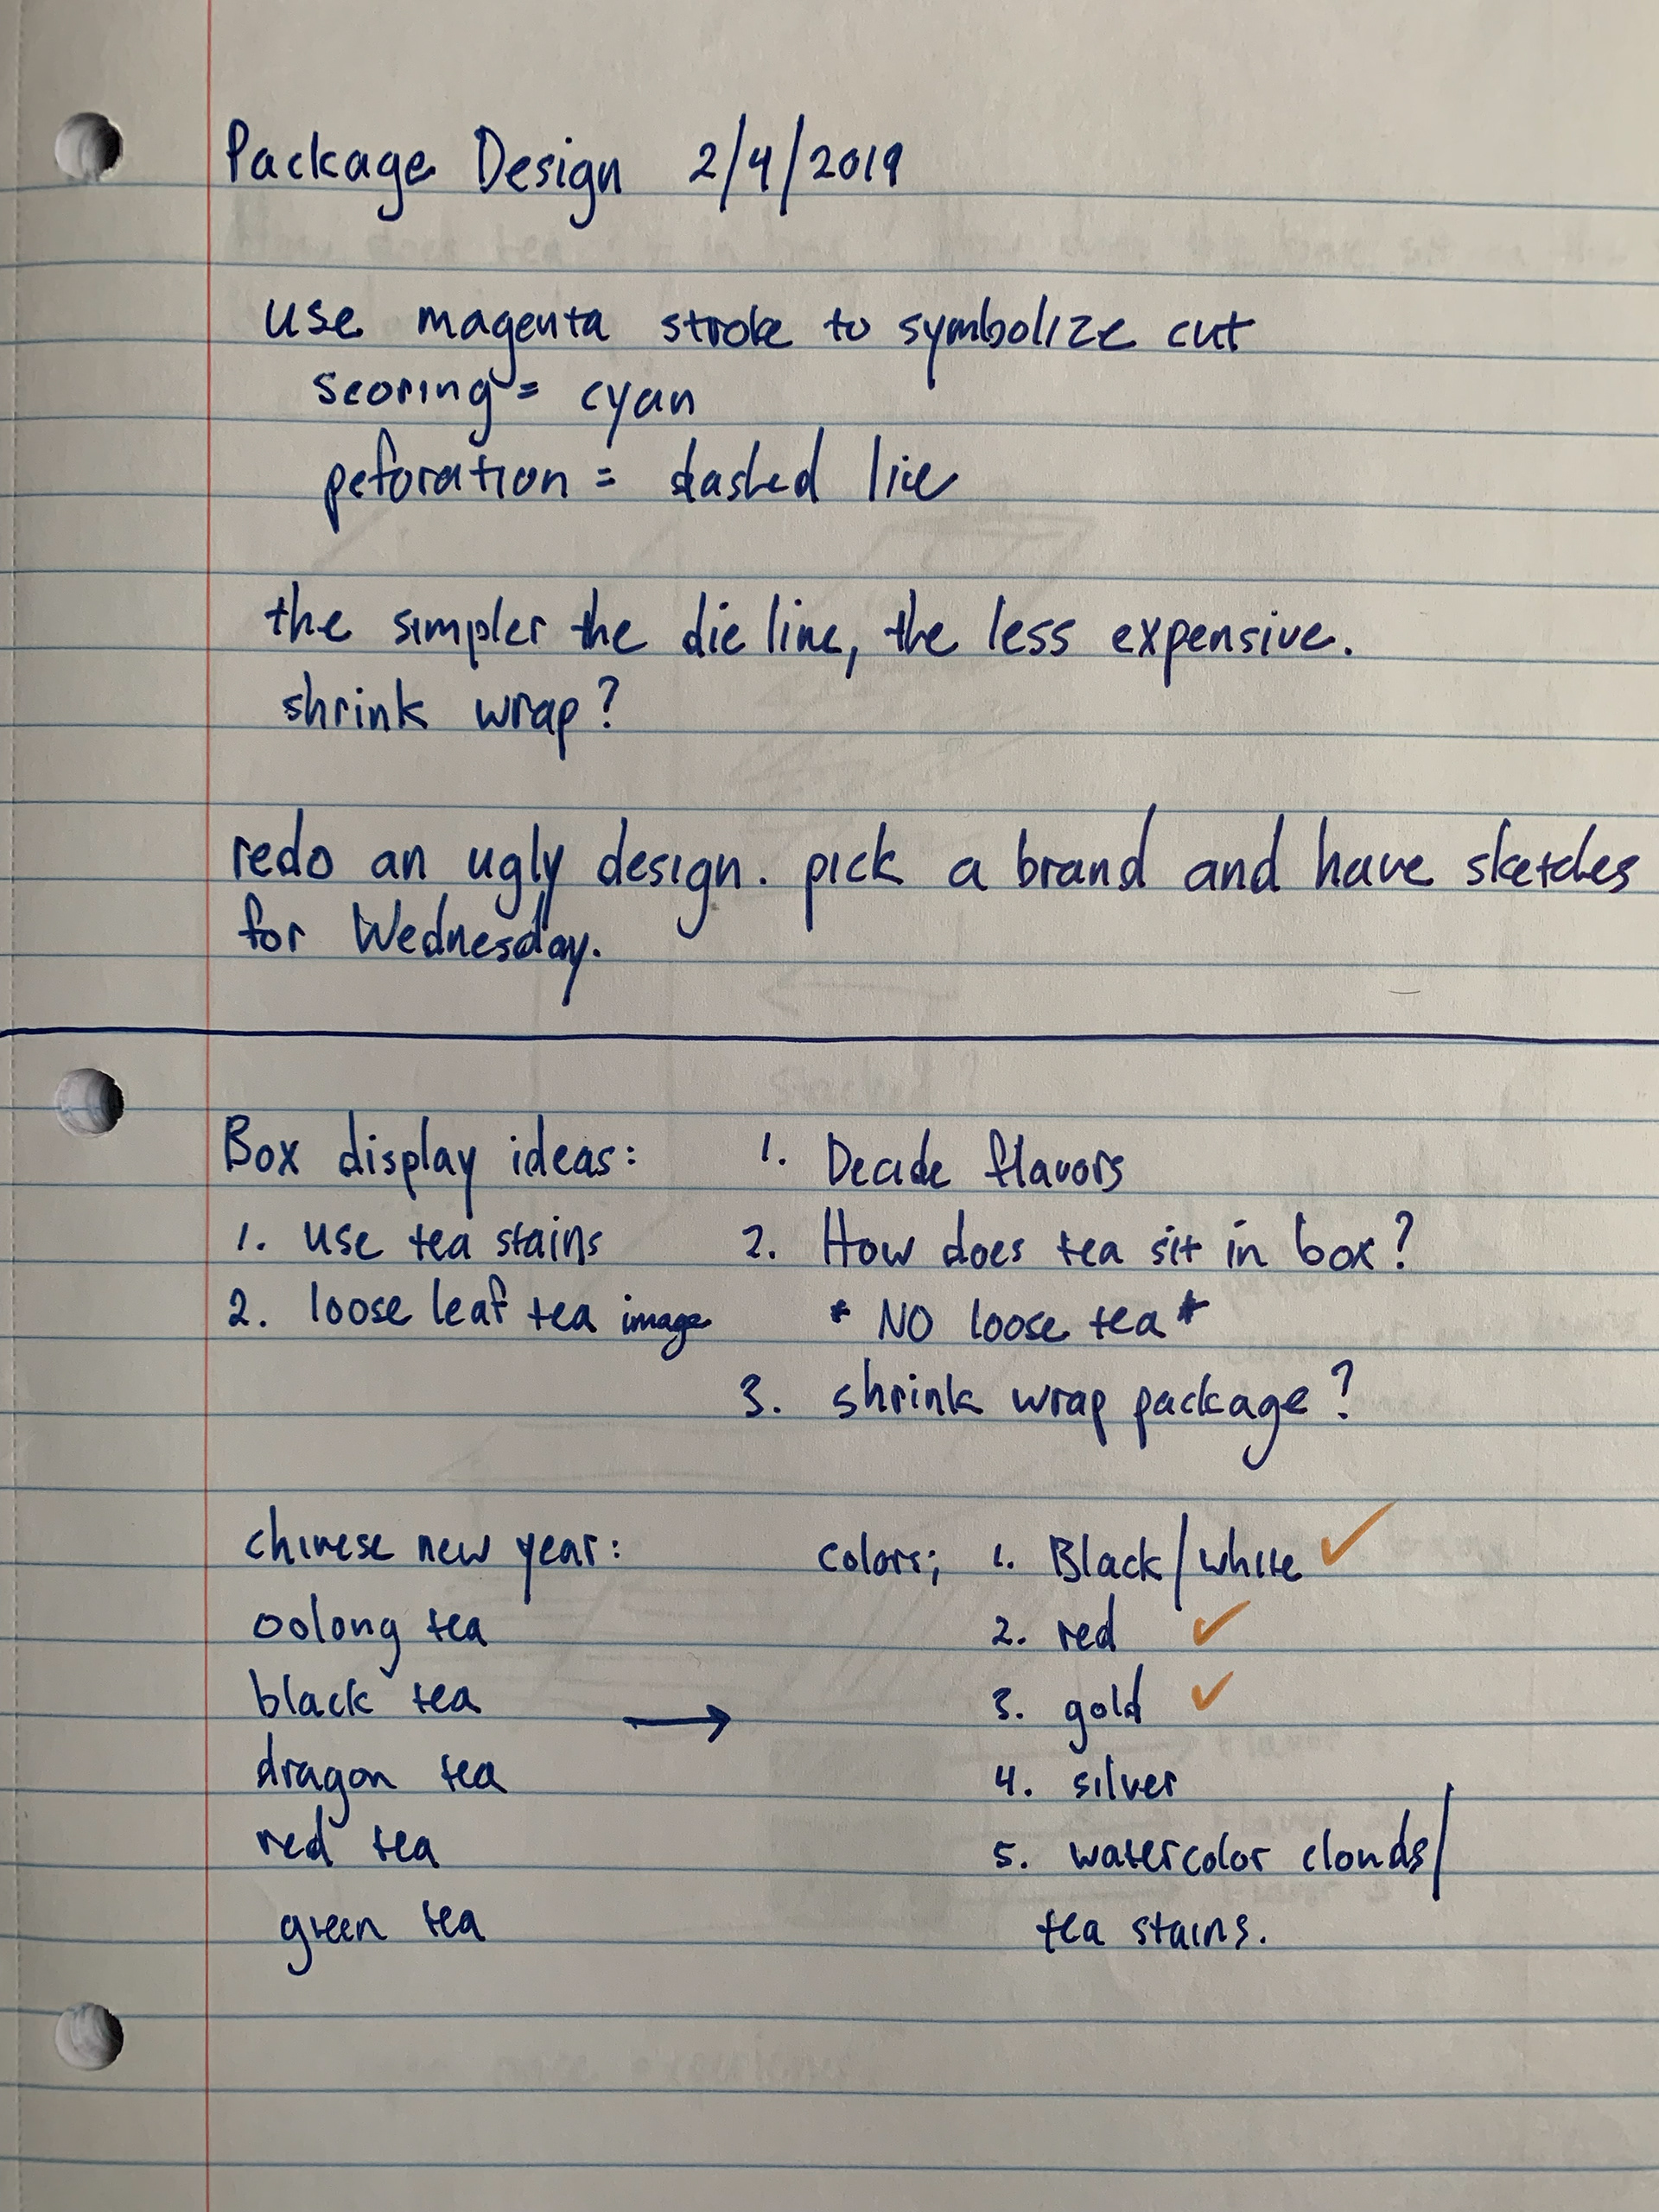 Package Design 2/4/2019
use magenta stroke to symbolize cut
scoring = cyan
peforation = dashed line
the simpler the die line, the less expensive.
shrink wrap?
redo an ugly design. pick a brand and have sketches
for Wednesday.
Box display ideas:
1. use tea stains
2. loose leaf tea image
1. Decide flavors
2. How does tea sit in box?
* NO loose tea *
3. shrink wrap package?
chinese new year:
oolong tea
black tea
dragon tea
red tea
green tea
→
colors; 1. Black/white ✓
2. red ✓
3. gold ✓
4. silver
5. watercolor clouds/
tea stains.